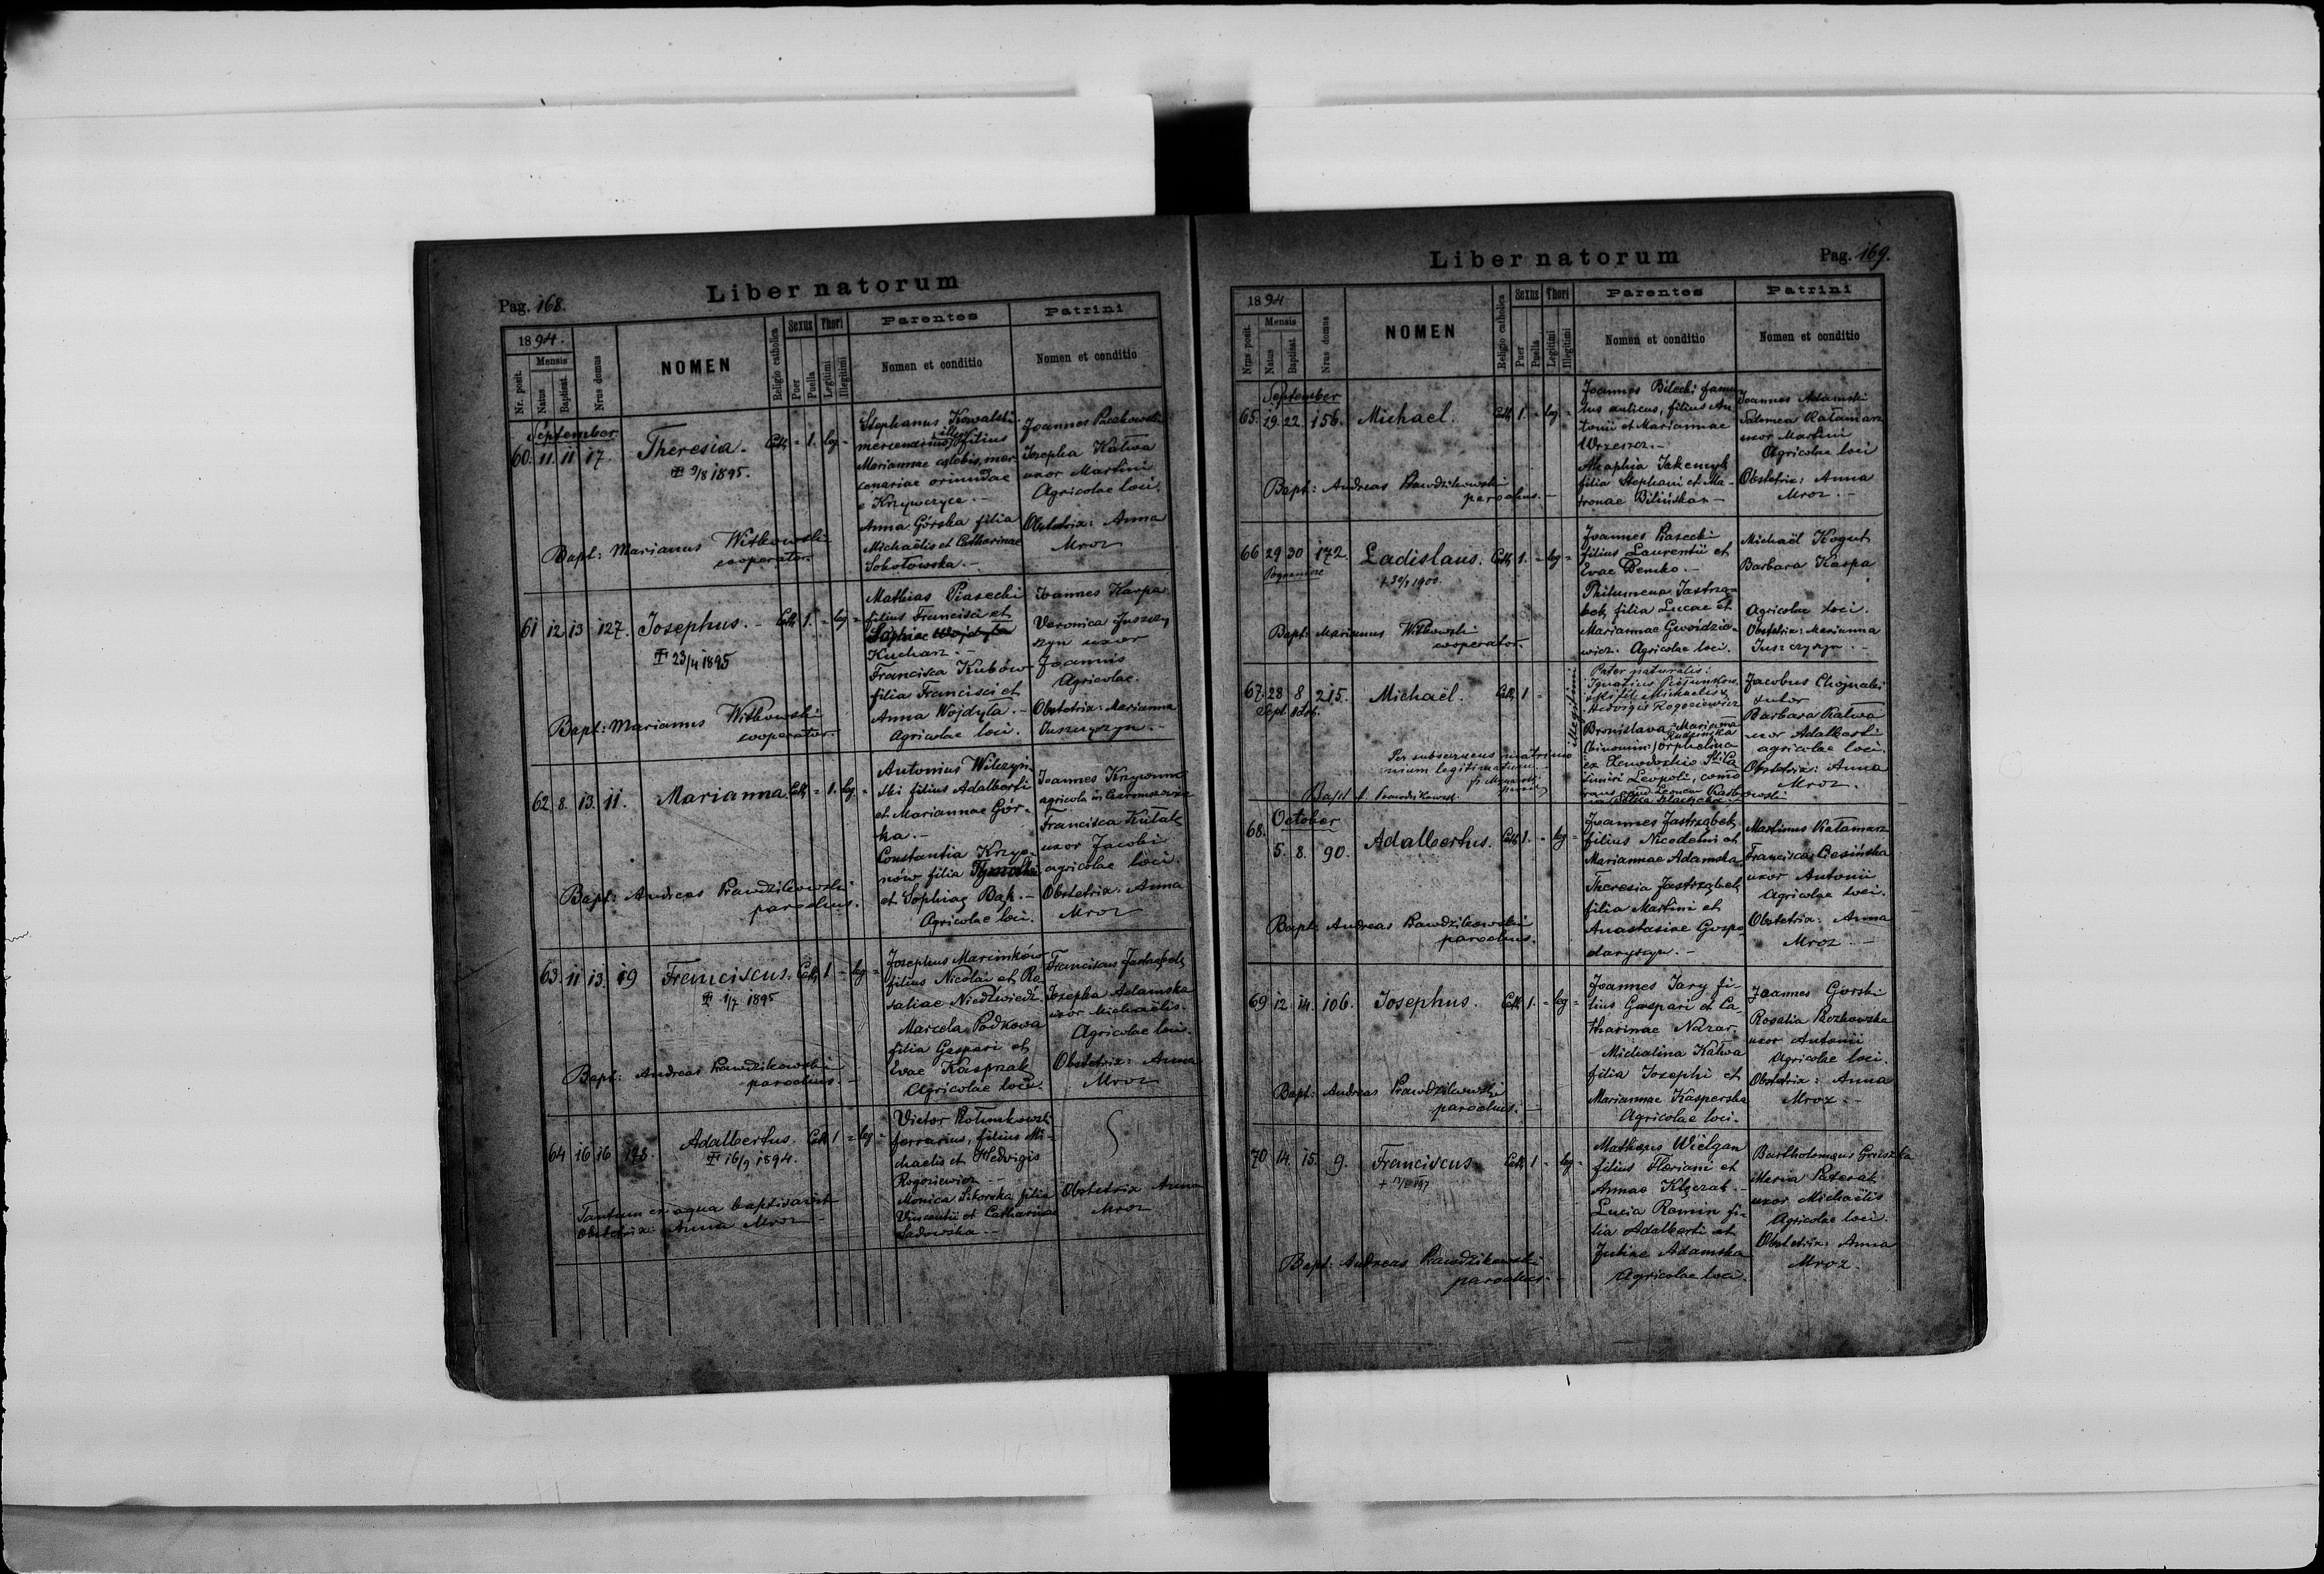 Pag. 168.
Liber natorum
1894.
Nr. posit.
Mensis
Natus
Baptisat.
Nrus domus
NOMEN
Religio catholica
Sexus
Puer
Puella
Thori
Legitimi
Illegitimi
Parentes
Nomen et conditio
Patrini
Nomen et conditio
September
60. 11. 11 17. Theresia. Cath = 1. leg =
9/8 1895.
Stephanus Kowalski
mercenarius, illeg. filius
Mariannae caelebis, mer-
cenariae oriundae
e Krzywczyce. -
Anna Górska filia
Michaëlis et Catharinae
Sokołowska. -
Joannes Paczkowski
Josepha Kałwa
uxor Martini
Agricolae loci.
Obstetrix: Anna
Mroz
Bapt: Marianus Witkowski
cooperator.
61 12 13 127. Josephus. - Cath 1. = leg =
23/4 1895
Mathias Piasecki
filius Francisci et
Sophiae Wojdyła
Kucharz. -
Francisca Kubów
filia Francisci et
Anna Wojdyła. -
Agricolae loci.
Joannes Karpa
Veronica Juszczy
szyn uxor
Joannis
Agricolae.
Obstetrix: Marianna
Juszczyszyn. -
Bapt: Marianus Witkowski
cooperator.
62. 8. 13. 11. Marianna. Cath = 1. leg. =
Antonius Wilczyń-
ski filius Adalberti
et Mariannae Gór-
ka. -
Constantia Krzyw-
nów filia
et Sophiae Bąk. -
Agricolae loci.
Joannes Krzywonos
agricola in
Francisca Kułak
uxor Jacobi
agricolae loci.
Obstetrix: Anna
Mroz
Bapt: Andreas Prawdzikowski
parochus.
63. 11 13. 19 Franciscus. Cath 1 = leg =
1/7 1895
Josephus Marcinków
filius Nicolai et Ro-
saliae Niedźwiedź.
Marcela Podkowa
filia Gaspari et
Evae Kasprzak
Agricolae loci.
Franciscus Jastrzębek
Josepha Adamska
uxor Michaëlis.
Agricolae loci.
Obstetrix: Anna
Mroz
Bapt: Andreas Prawdzikowski
parochus -
64 16 16 198. Adalbertus. Cath 1 = leg =
16/9 1894.
Victor
ferrarius, filius Mi-
chaelis et Hedvigis
Rogoziewicz -
Monica Sikorska filia
Vincentii et Catharinae
Sadowska. -
Obstetrix Anna
Mroz
Tantum ex aqua baptisavit
Obstetrix: Anna Mroz -
Liber natorum
Pag. 169.
1894
Nrus posit.
Mensis
Natus
Baptisat.
Nrus domus
NOMEN
Religio catholica
Sexus
Puer
Puella
Thori
Legitimi
Illegitimi
Parentes
Nomen et conditio
Patrini
Nomen et conditio
September
65. 19. 22. 156. Michael. Cath 1. = leg. =
Joannes Bilecki famu-
lus aulicus, filius An-
tonii et Mariannae
Wrzeszcz. -
Agaphia Jakemyk
filia Stephani et Ma-
tronae Bilińska. -
Joannes Adamski
Salomea Kałamarz
uxor Martini
Agricolae loci
Obstetrix: Anna
Mroz. -
Bapt: Andreas Prawdzikowski
parochus. -
66 29 30 172. Ladislaus. Cath 1. = leg =
1900.
Joannes Piasecki
filius Laurentii et
Evae Demko. -
Philumena Jastrzę-
bek, filia Lucae et
Mariannae Gwoździe-
wicz. Agricolae loci.
Michaël Kogut
Barbara Karpa
Agricolae loci.
Obstetrix: Marianna
Juszczyszyn. -
Bapt: Marianus Witkowski
cooperator.
67. 28 8 215. Michaël. Cath 1 =
Sept. Octob.
Illegitimi
Pater naturalis:
Ignatius
fil. Michaelis et
Hedvigis Rogoziewicz
Bronislava Marianna
(binomin.) orphelina
Leopoli,
Jacobus Chojnacki
sutor
Barbara Kałwa
uxor Adalberti
agricolae loci.
Obstetrix: Anna
Mroz.
Per subsequens matrimo
nium legitimatum. -
Bapt A. Prawdzikowski
October
68. 5. 8. 90. Adalbertus. Cath 1. = leg =
Joannes Jastrzębek
filius Nicodemi et
Mariannae Adamska.
Theresia Jastrzębek
filia Martini et
Anastasiae Gospo-
daryszyn. -
Martinus Kałamarz
Francisca Cesińska
uxor Antonii
Agricolae loci.
Obstetrix: Anna
Mroz. -
Bapt: Andreas Prawdzikowski
parochus.
69 12. 14. 106. Josephus. Cath. 1. = leg =
Joannes Jary fi-
lius Gaspari et Ca-
tharinae Nazar.
- Michalina Kałwa
filia Josephi et
Mariannae Kasperska
Agricolae loci.
Joannes Górski
Rosalia Paczkowska
uxor Antonii
Agricolae loci.
Obstetrix: Anna
Mroz. -
Bapt: Andreas Prawdzikowski
parochus. -
70 14. 15. 9. Franciscus Cath 1 = leg =
Mathaeus Wielgan
filius Floriani et
Annae
Lucia Romin fi-
lia Adalberti et
Juliae Adamska
Agricolae loci.
Bartholomaeus Gruszka
Maria Paterak
uxor Michaëlis
Agricolae loci.
Obstetrix: Anna
Mroz.
Bapt: Andreas Prawdzikowski
parochus. -